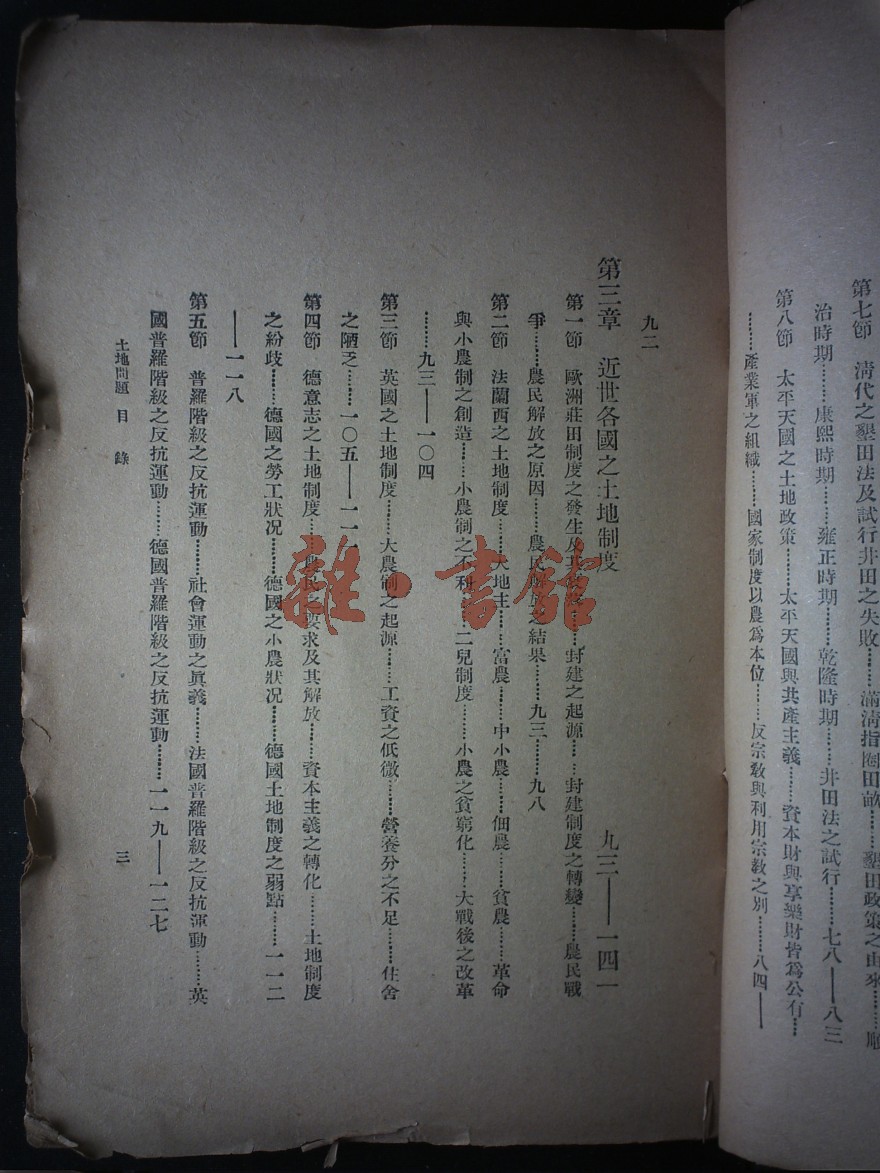 第七節　清代之墾田法及試行井田之失敗………滿淸指圈田畝………墾田政策之由來………順
治時期………康熙時期………雍正時期………乾隆時期………井田法之試行………七八——八三
第八節　太平天國之土地政策………太平天國與共產主義………資本財與享樂財皆爲公有………
………產業軍之組織………國家制度以農爲本位………反宗敎與利用宗敎之別………八四——
九二
第三章　近世各國之土地制度　九三——一四一
第一節　歐洲莊田制度之發生及其 ………封建之起源………封建制度之轉變………農民戰
爭………農民解放之原因………農民解放之結果………九三………九八
第二節　法蘭西之土地制度………大地主………富農………中小農………佃農………貧農………革命
與小農制之創造………小農制之不利 二兒制度………小農之貧窮化………大戰後之改革
………九三——一〇四
第三節　英國之土地制度………大農制之起源………工資之低微………營養分之不足………住舍
之陋乏………一〇五——一一
第四節　德意志之土地制度………農民之要求及其解放………資本主義之轉化………土地制度
之紛歧………德國之勞工狀况………德國之小農狀况………德國土地制度之弱點………一一二
——一一八
第五節　普羅階級之反抗運動………社會運動之眞義………法國普羅階級之反抗運動………英
國普羅階級之反抗運動………德國普羅階級之反抗運動………一一九——一二七
土地問題　目錄　三
雜·書館